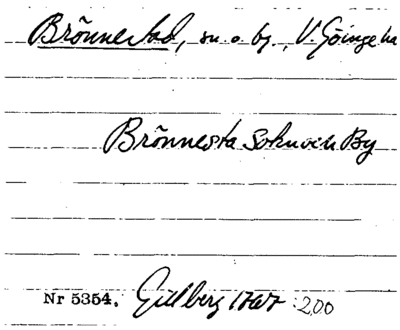 Brönnestad, sn. o. by., V. Göinge hd
Brönnesta Sokn och By
Nr 5354. Gillberg 1767 :200